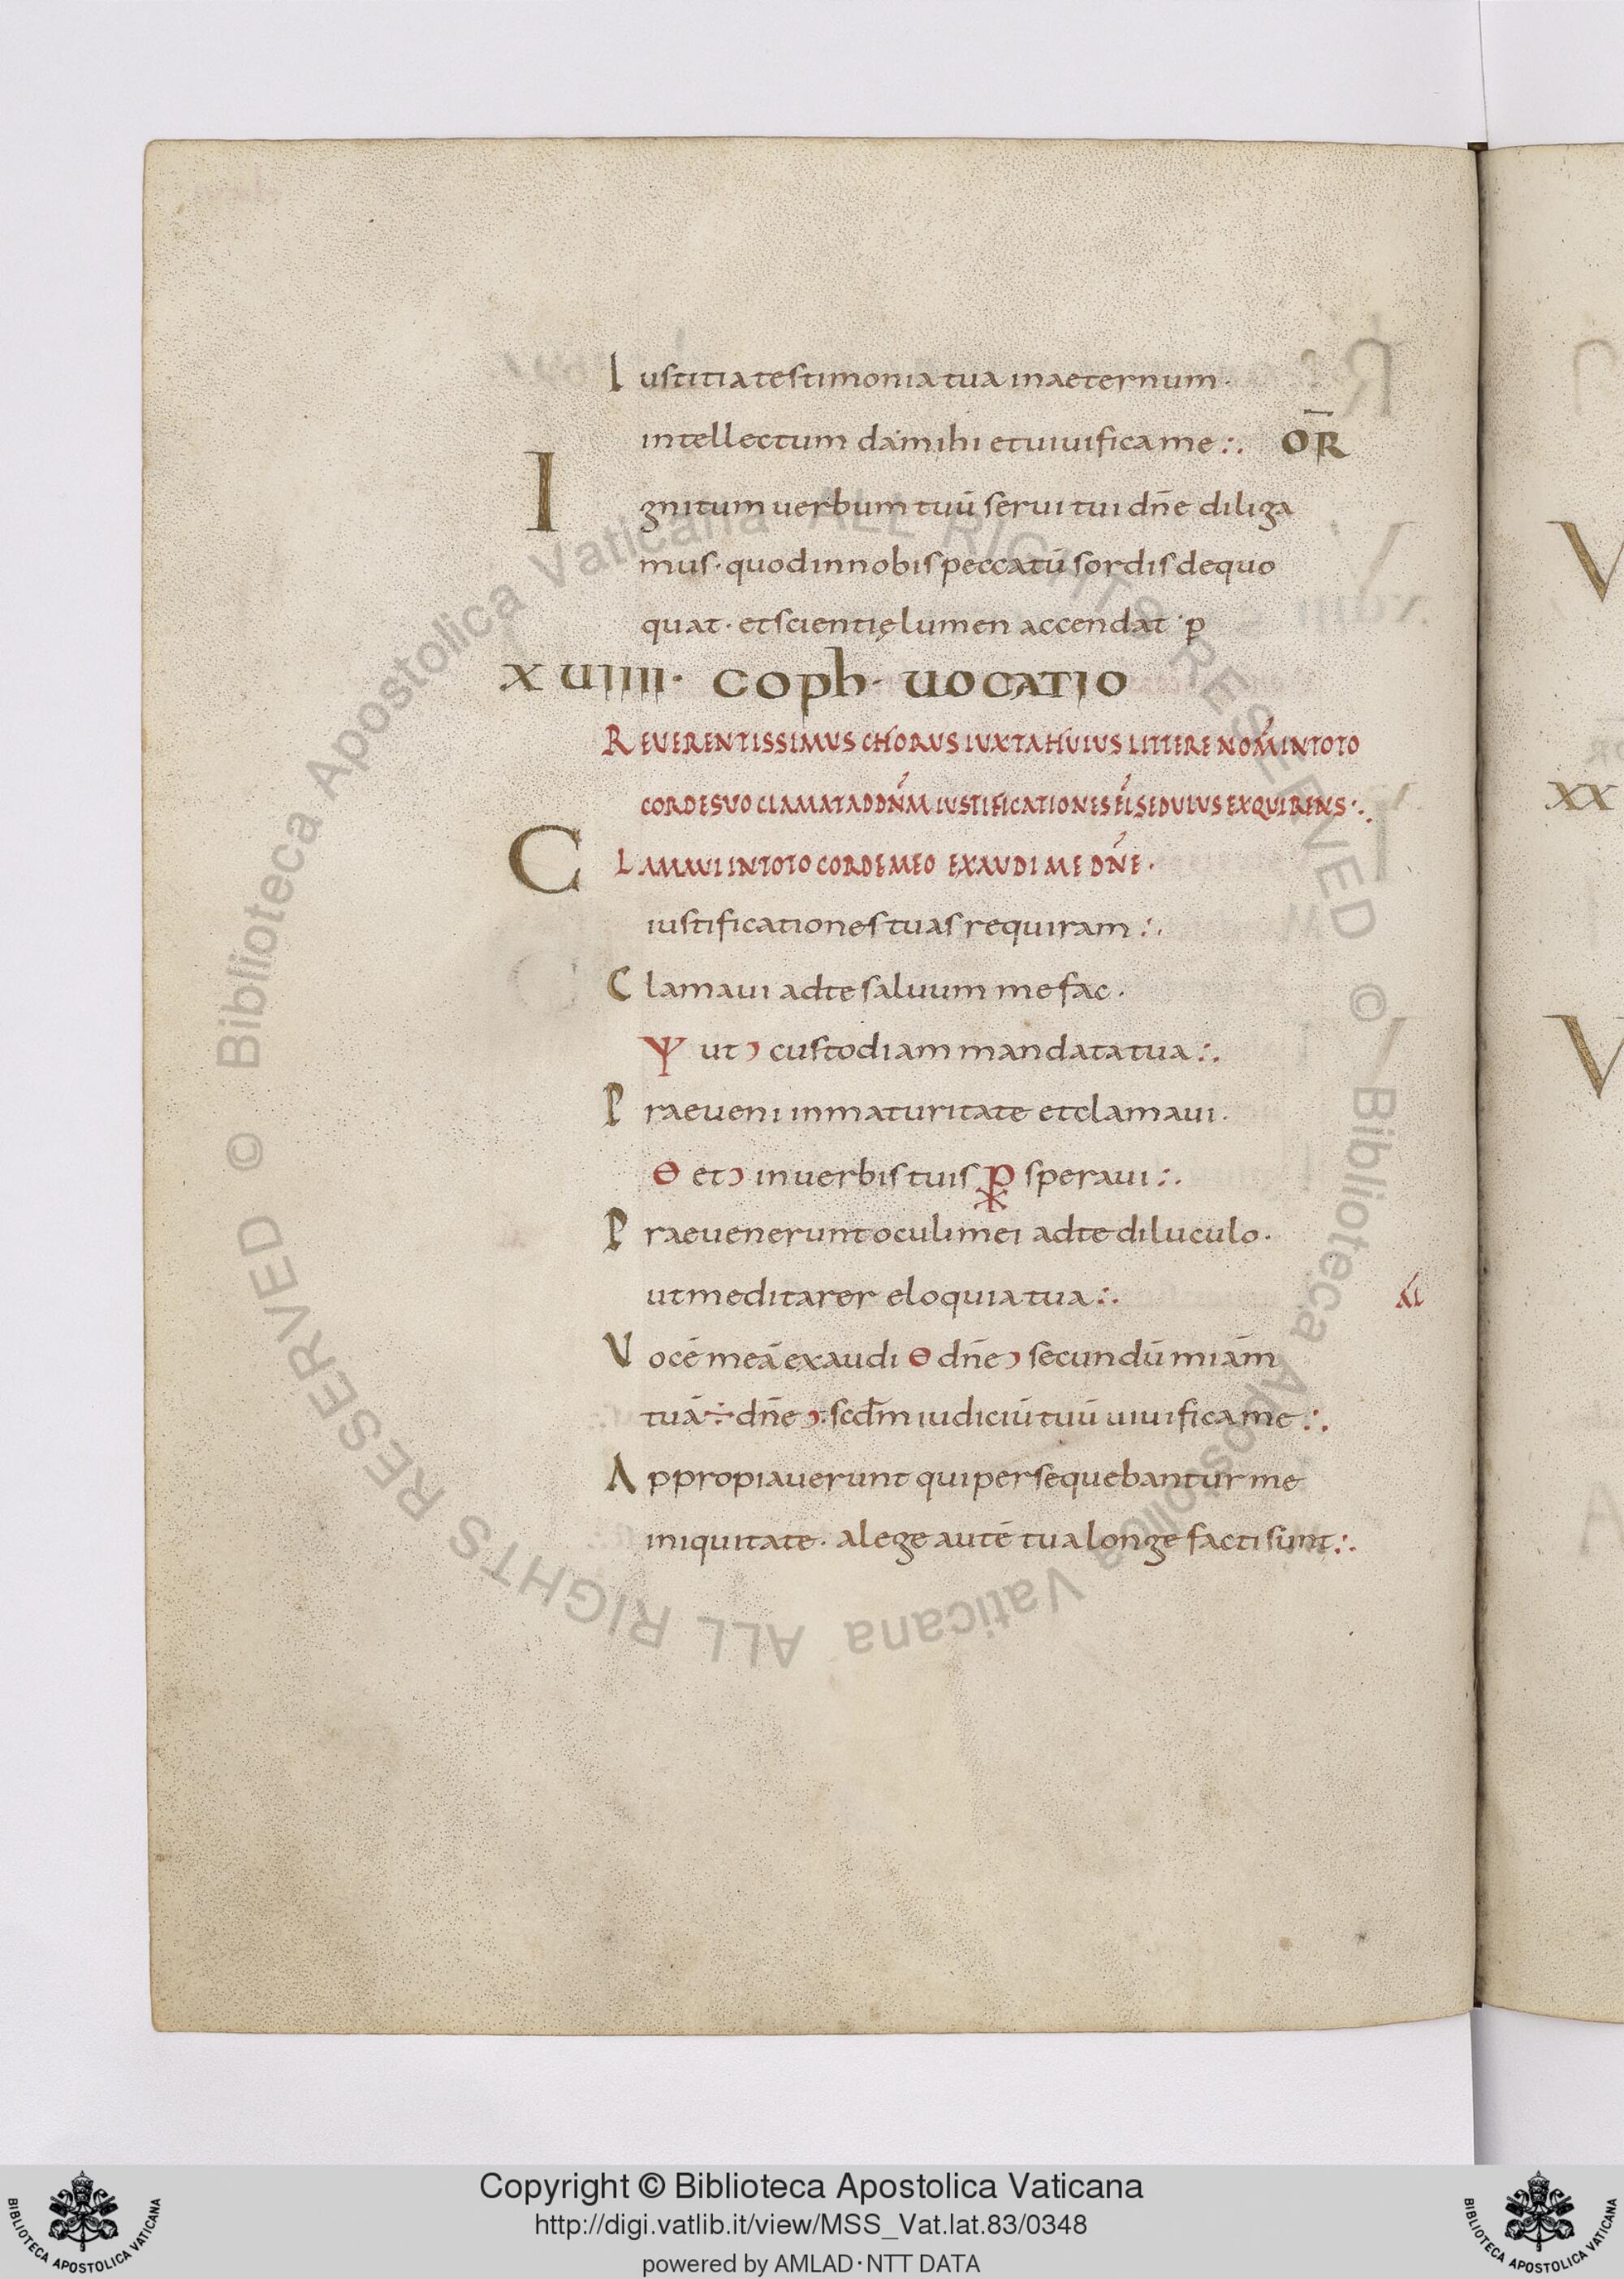 Iustitia testimonia tua in aeternum·
intellectum da mihi et uiuifica me :· OR̄
Ignitum uerbum tuū serui tui dn̄e diliga
mus· quod in nobis peccatū sordis dequo
quat· et scientię lumen accendat · p̱
XUIIII· COPH· UOCATIO
REVERENTISSIMUS CHORUS IUXTA HUIUS LITTERE NOM̄ IN TOTO
CORDE SUO CLAMAT AD DN̄M IUSTIFICATIONES EĪ SEDULUS EXQUIRENS :·
CLAMAUI IN TOTO CORDE MEO EXAUDI ME DN̄E·
iustificationes tuas requiram :·
Clamaui ad te saluum me fac·
Ψ ut ɔ custodiam mandata tua :·
Praeueni in maturitate et clamaui·
Θ et ɔ in uerbis tuis ⳩ speraui :·
Praeuenerunt oculi mei ad te diluculo·
ut meditarer eloquia tua :·
Uocē meā exaudi Θ dn̄e ɔ secundū miām
tuā ÷ dn̄e ɔ: scd̄m iudiciū tuū uiuifica me :·
Appropiauerunt qui persequebantur me
iniquitate· a lege autē tua longe facti sunt :·
V
XX
V
© Biblioteca Apostolica Vaticana ALL RIGHTS RESERVED © Biblioteca Apostolica Vaticana ALL RIGHTS RESERVED
Copyright © Biblioteca Apostolica Vaticana
http://digi.vatlib.it/view/MSS_Vat.lat.83/0348
powered by AMLAD·NTT DATA
BIBLIOTECA APOSTOLICA VATICANA
BIBLIOTECA APOSTOLICA VATICANA